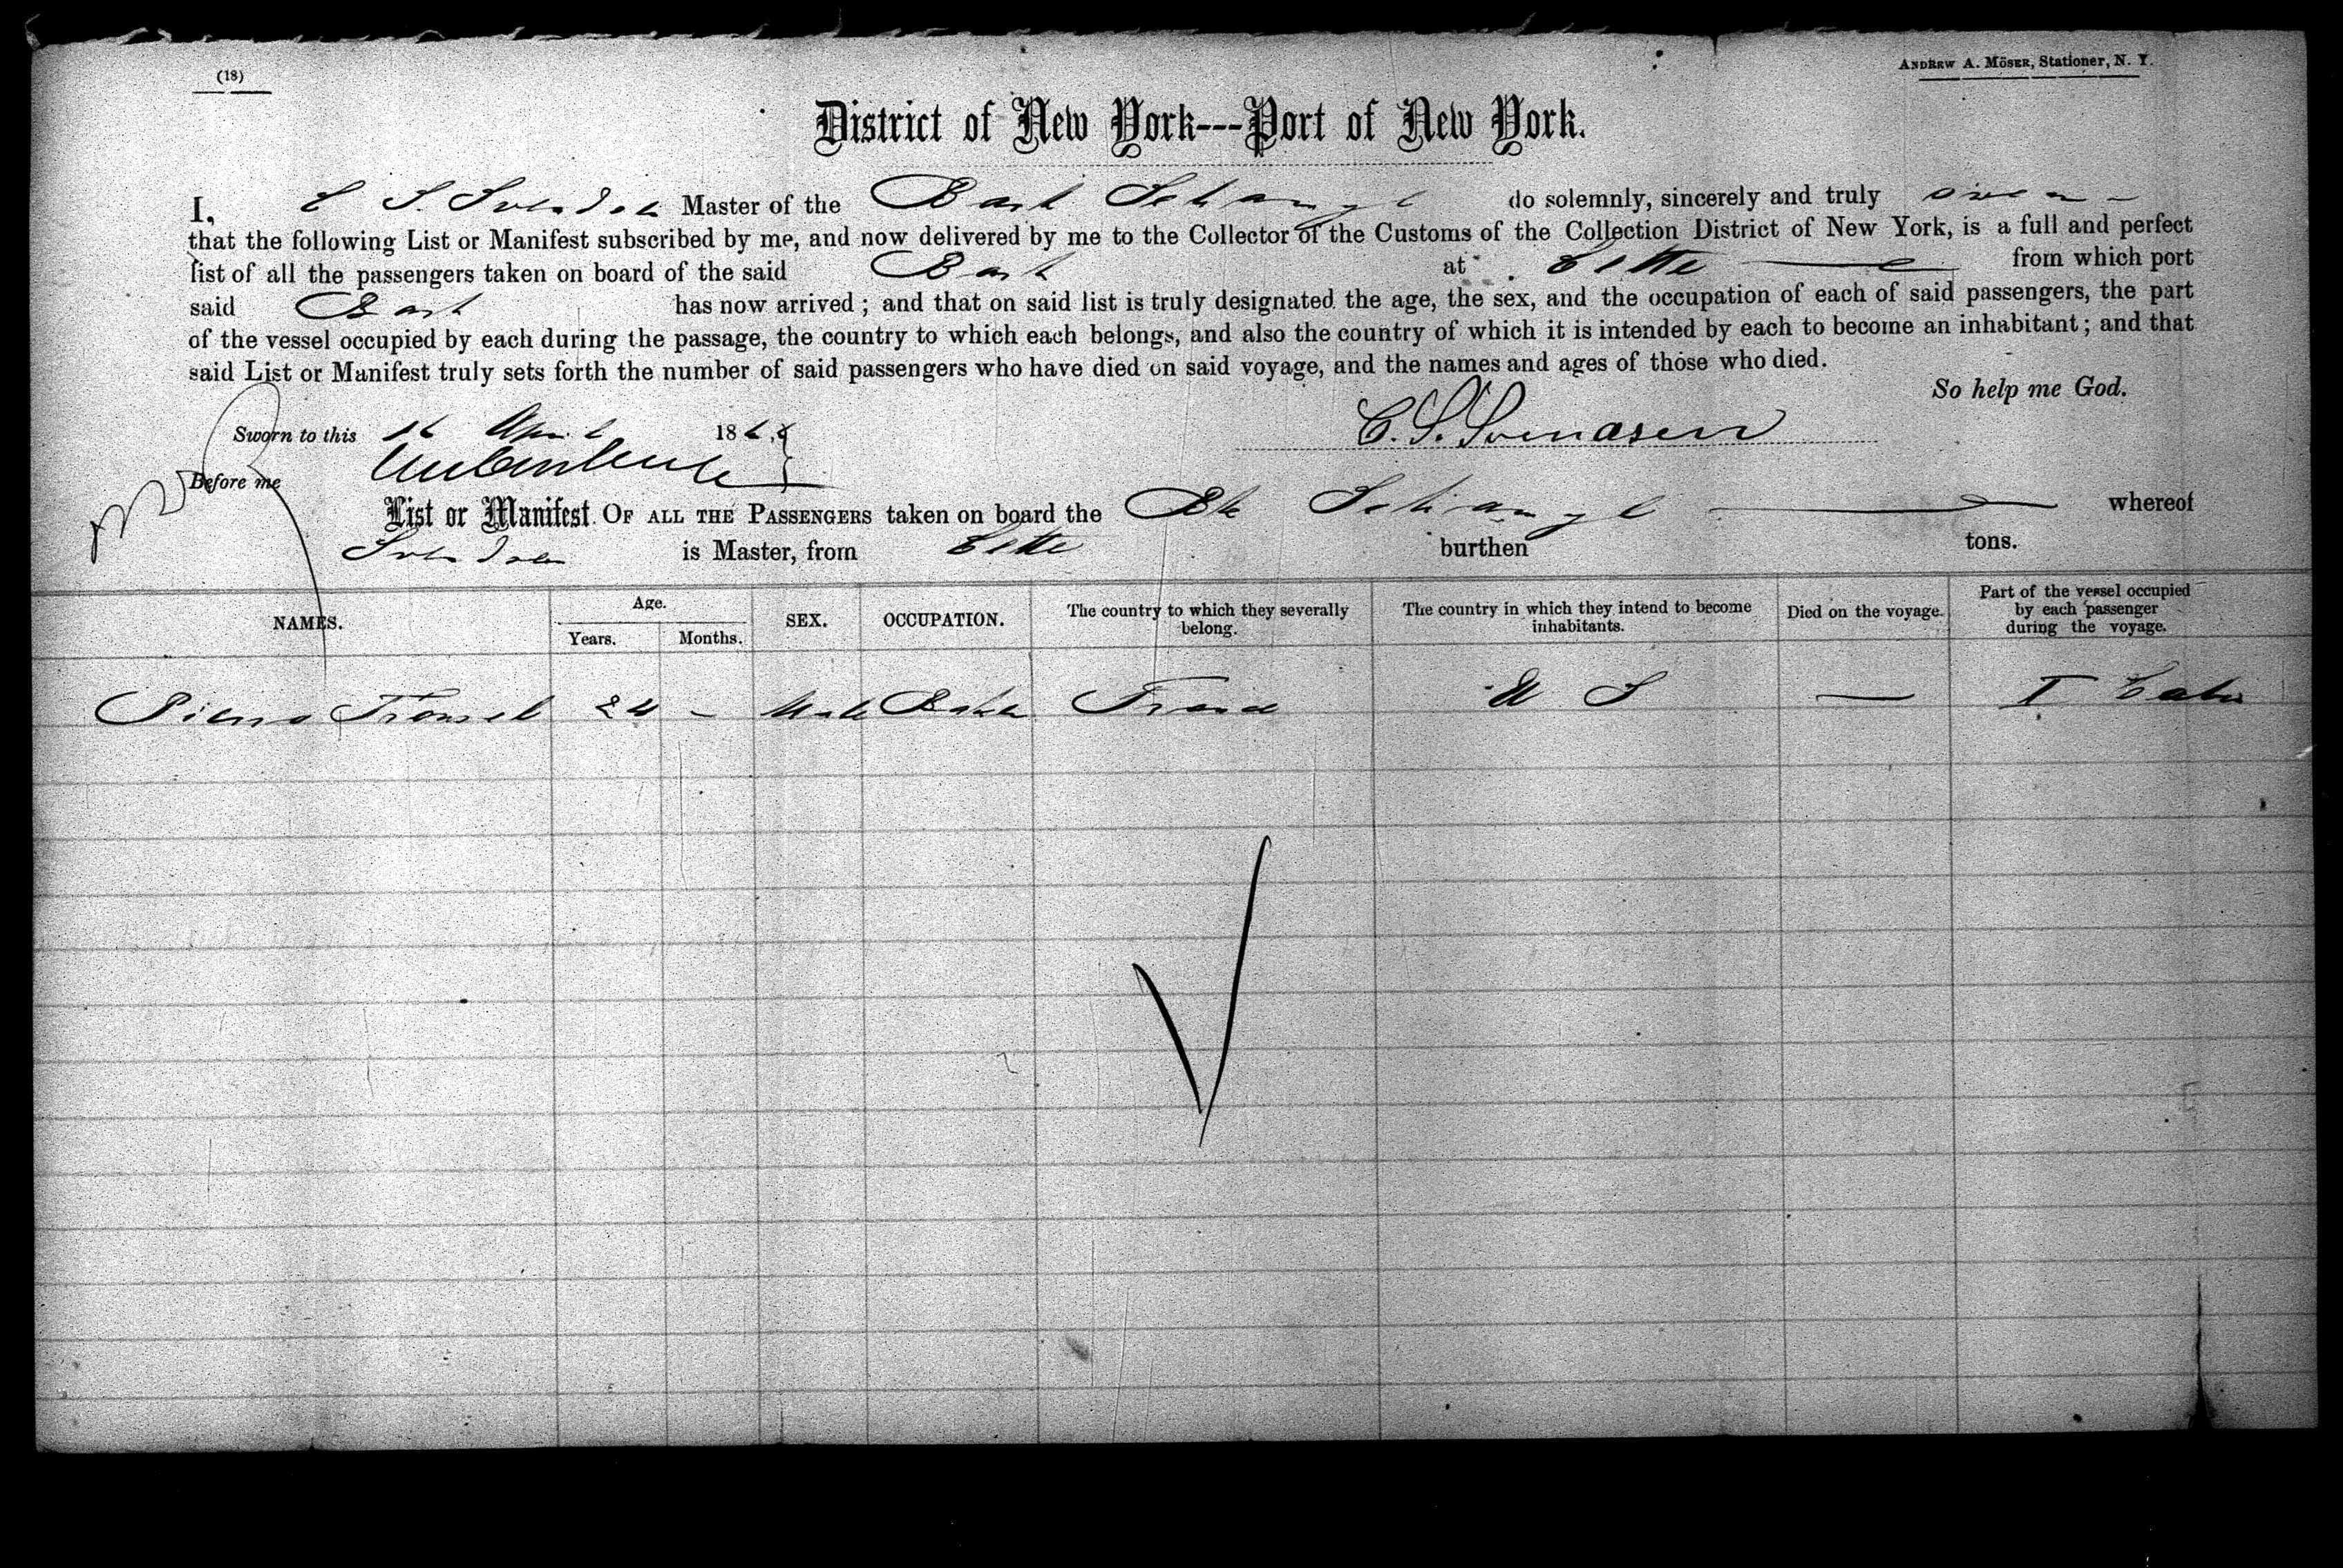 (18)
ANDREW A. MÖSER, Stationer, N. Y.
District of New York---Port of New York.
I, C S. Svendsen Master of the Bark do solemnly, sincerely and truly swear
that the following List or Manifest subscribed by me, and now delivered by me to the Collector of the Customs of the Collection District of New York, is a full and perfect
list of all the passengers taken on board of the said Bark at Cette from which port
said Bark has now arrived; and that on said list is truly designated the age, the sex, and the occupation of each of said passengers, the part
of the vessel occupied by each during the passage, the country to which each belongs, and also the country of which it is intended by each to become an inhabitant; and that
said List or Manifest truly sets forth the number of said passengers who have died on said voyage, and the names and ages of those who died.
So help me God.
Sworn to this 16 April 186
C. S. Svendsen
Before me
List or Manifest OF ALL THE PASSENGERS taken on board the Bk whereof
Svendsen is Master, from Cette burthen tons.
NAMES. Age. Years. Months. SEX. OCCUPATION. The country to which they severally belong. The country in which they intend to become inhabitants. Died on the voyage. Part of the vessel occupied by each passenger during the voyage.
24 - Male Baker France U S — Cabin